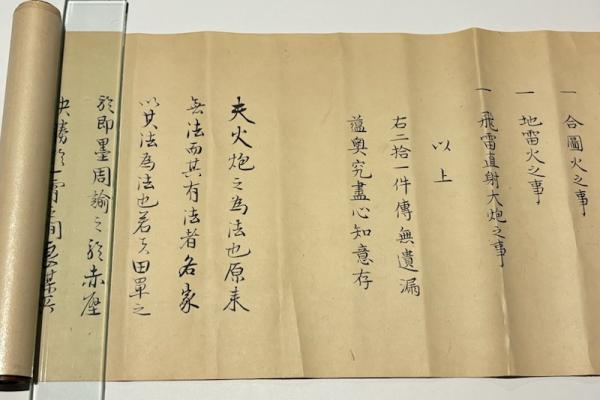 一 合圖火之事
一 地雷火之事
一 飛雷直射大炮之事
以上
右二拾一件傳無遺漏
蘊奥究盡心知意存
夫火炮之為法也原来
無法而其有法者各家
以其法為法也若夫田單之
於即墨周諭之於赤壁
決勝於一宵之間